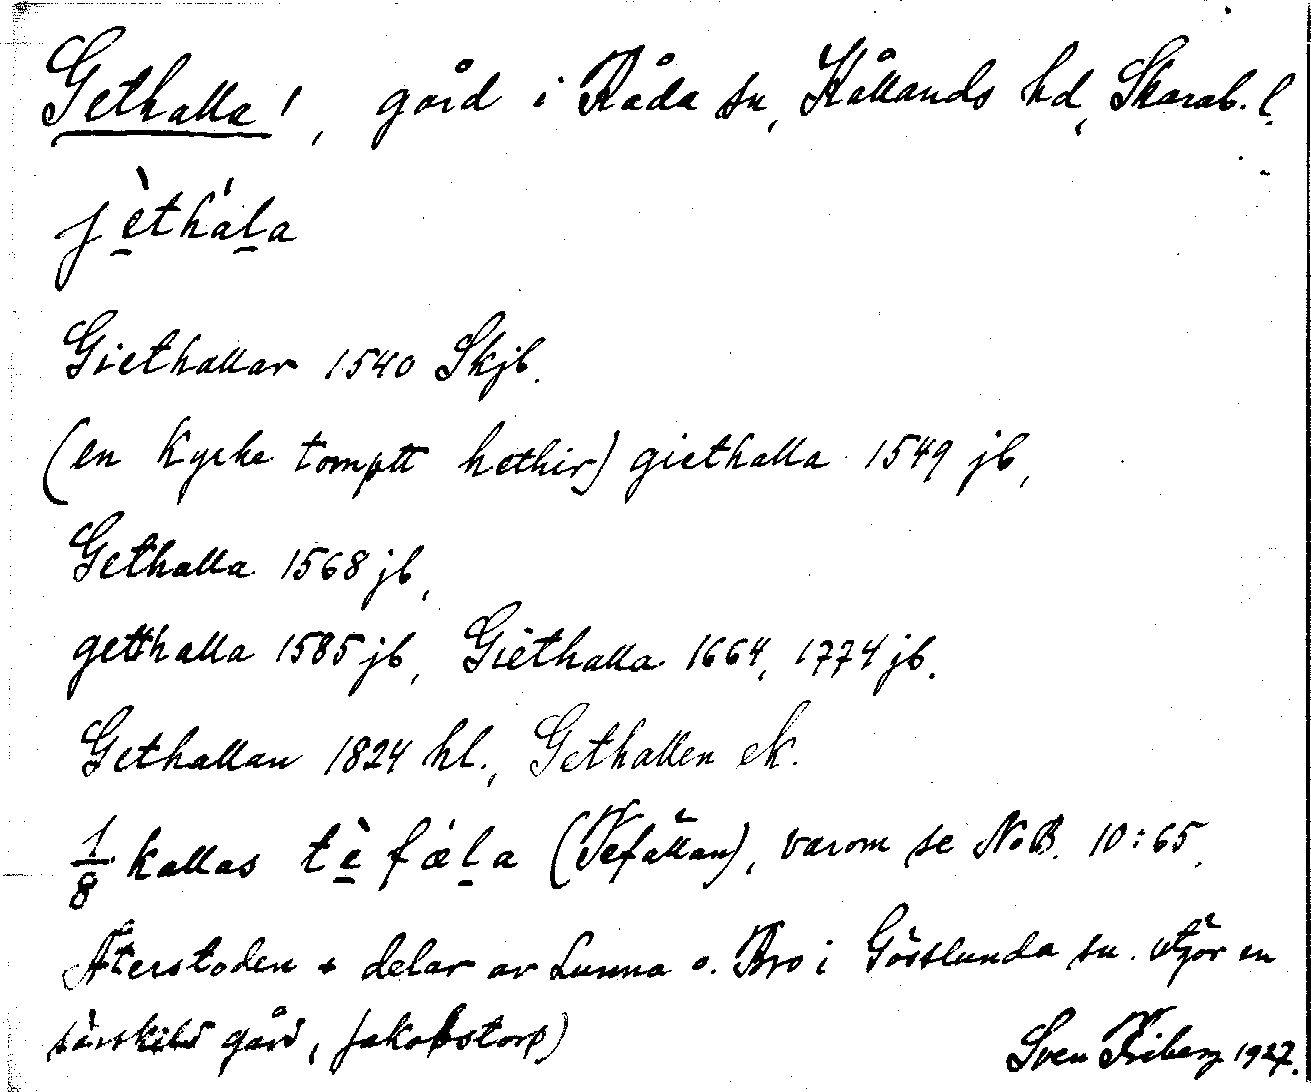 Gethalla!, gård i Råda sn, Kållands hd, Skarab. l.
jèthála
Giethallar 1540 Skjb.
(en kyrke tomptt hethir) giethalla 1549 jb,
Gethalla 1568 jb,
getthalla 1585 jb, Giethalla 1664, 1774 jb.
Gethallan 1824 hl., Gethallen ek.
1/8 kallas tè fǽla (Tefällan), varom se NoB. 10:65.
Återstoden + delar av Lunna o. Bro i Gösslunda sn. utgör en
särskild gård, Jakobstorp)
Sven Friberg 1927.